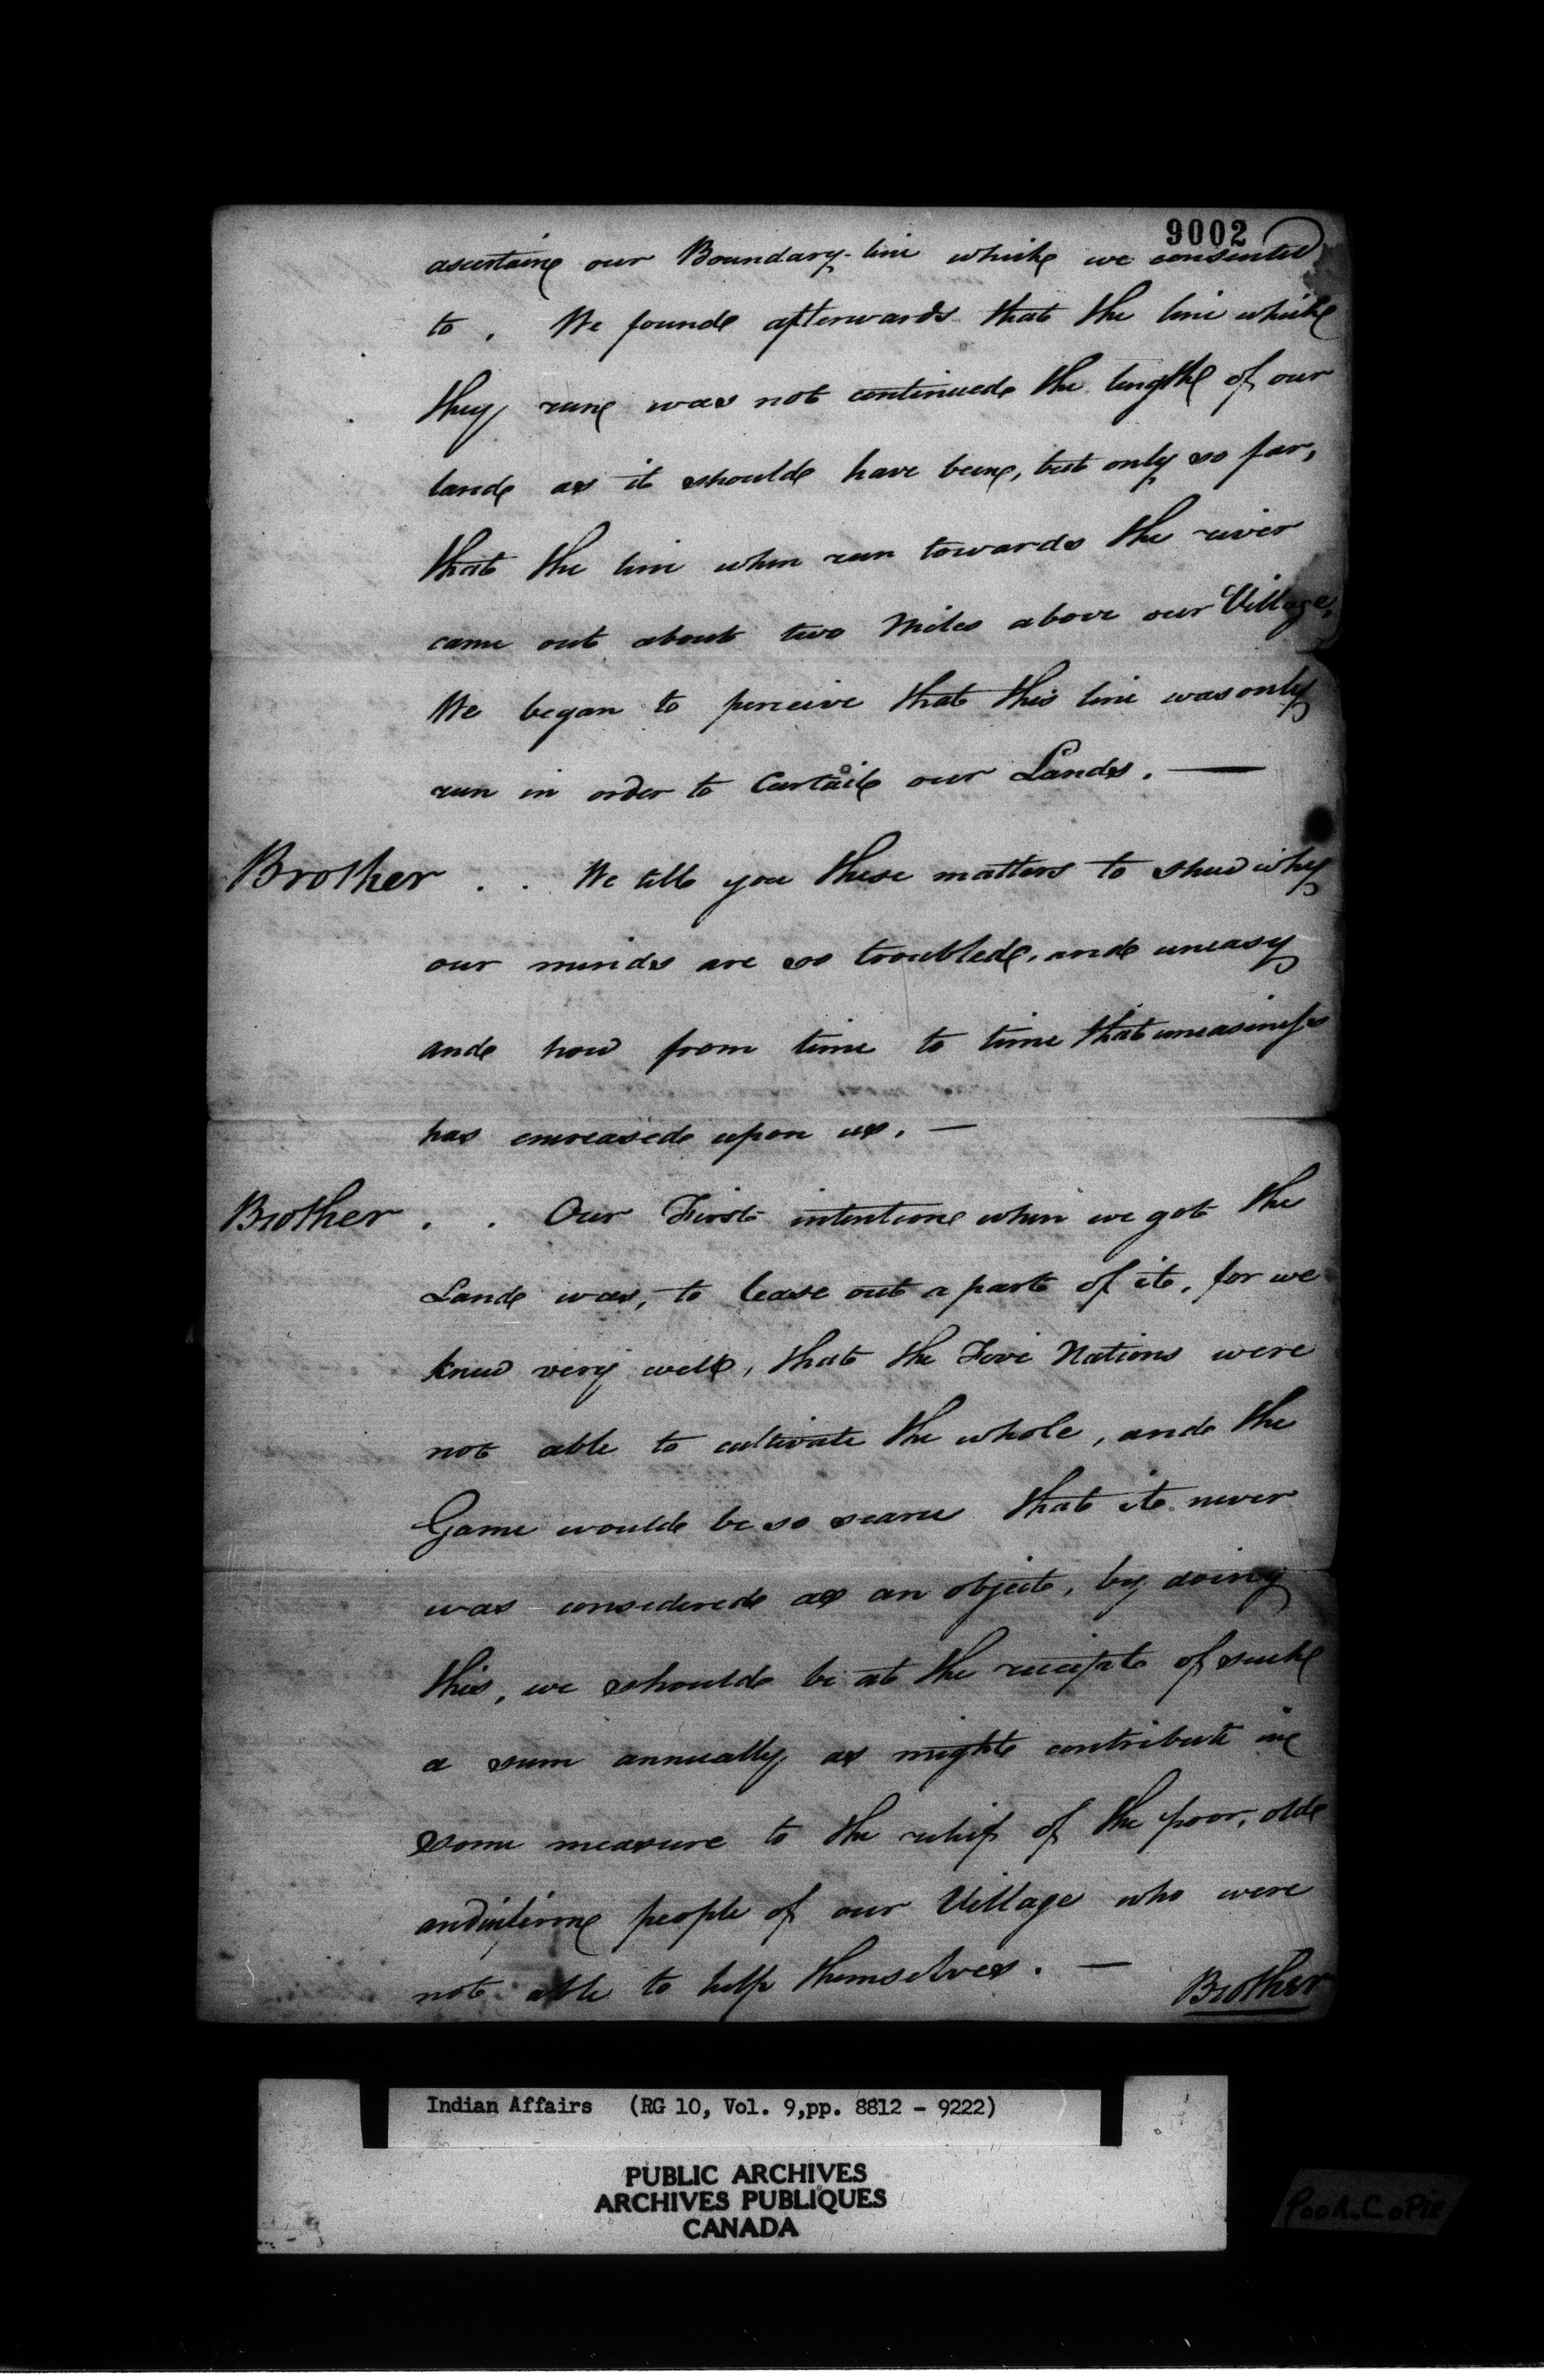 9002
ascertain our Boundary-line which we consented
to. We found afterwards that the line which
they run was not continued the length of our
land as it should have been, but only so far,
that the line when run towards the river
came out about two Miles above our Village.
We began to perceive that this line was only
run in order to Curtail our Lands. —
Brother . . We tell you these matters to shew why
our minds are so troubled, and uneasy
and how from time to time that uneasiness
has encreased upon us. —
Brother . . Our First intention when we got the
Land was, to lease out a part of it, for we
knew very well, that the Five Nations were
not able to cultivate the whole, and the
Game would be so scarce that it never
was considered as an object, by doing
this, we should be at the receipt of such
a sum annually as might contribute in
some measure to the relief of the poor, old
and infirm people of our Village who were
not able to help themselves. —
Brother
Indian Affairs (RG 10, Vol. 9,pp. 8812 - 9222)
PUBLIC ARCHIVES
ARCHIVES PUBLIQUES
CANADA
Poor.Copie